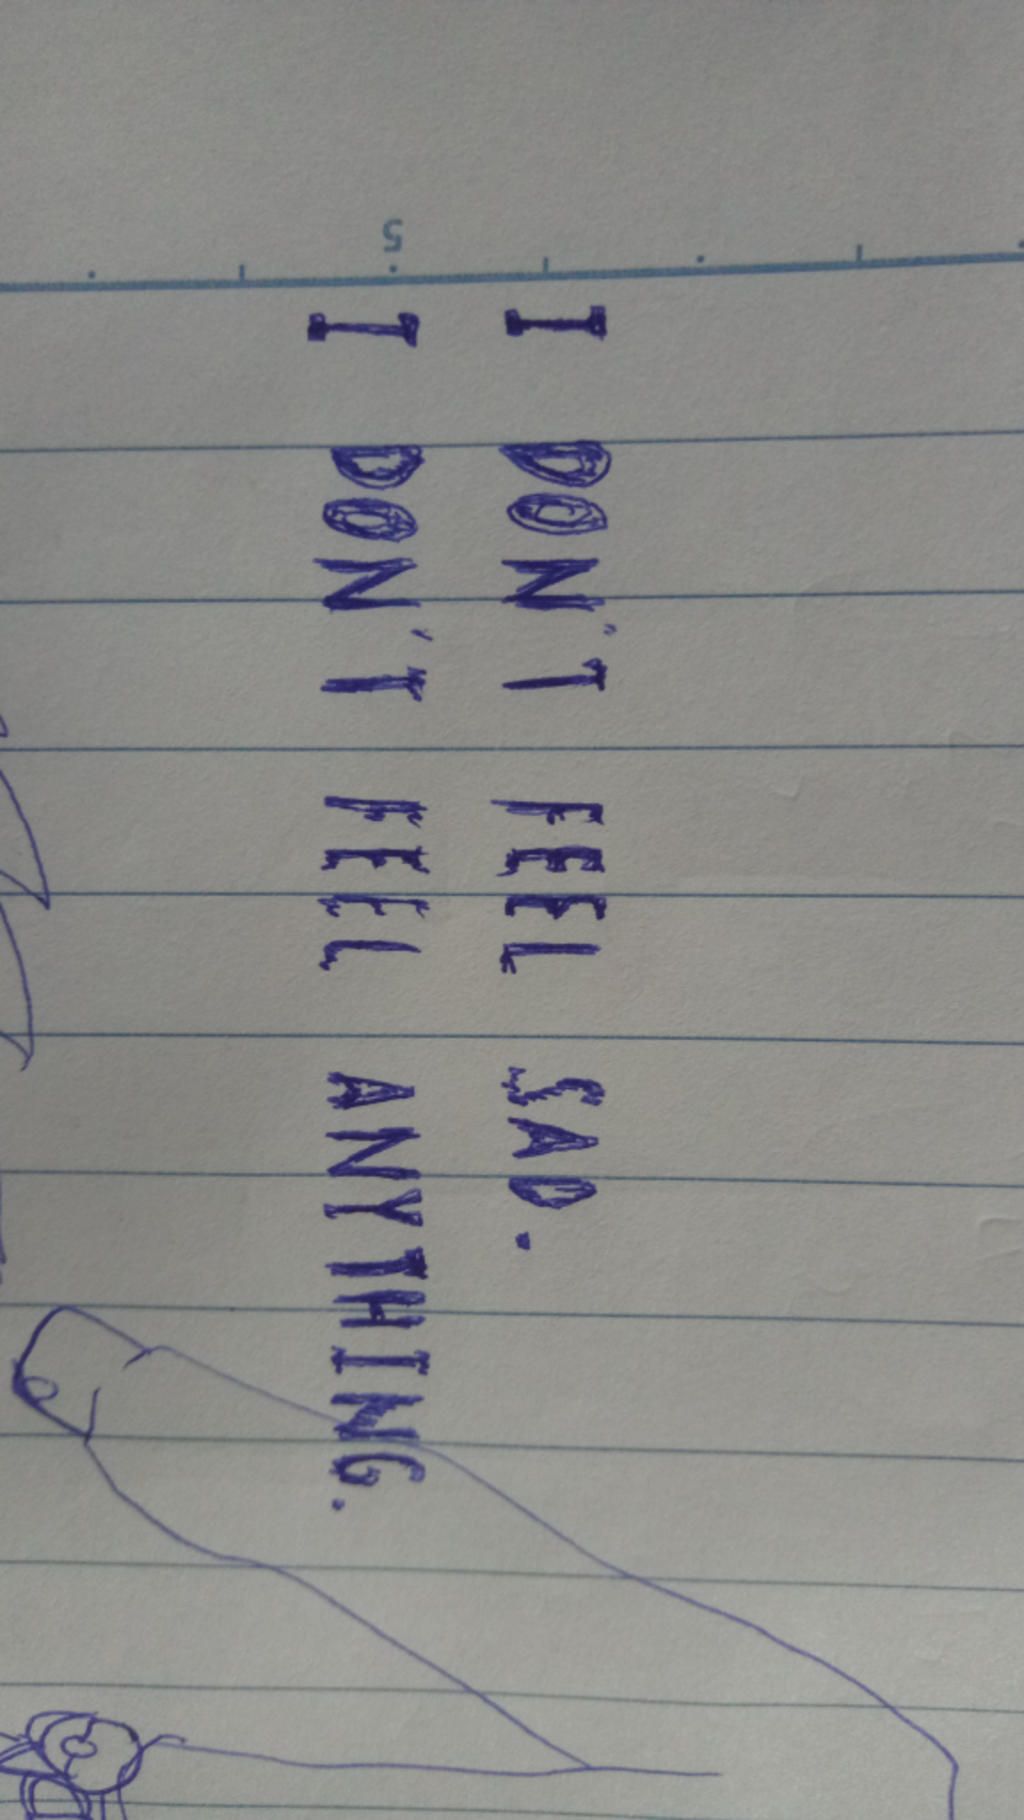 5
I DON'T FEEL SAD.
I DON'T FEEL ANYTHING.